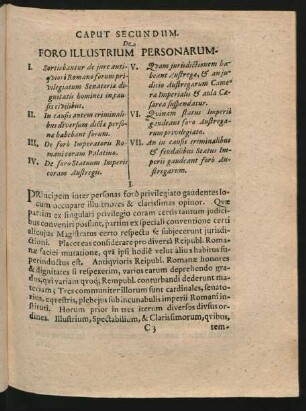 CAPUT SECUNDUM.
De
FORO ILLUSTRIUM PERSONARUM.
I. Sortiebantur de jure anti-
quiori Romano forum pri-
vilegiatum Senatoria di-
gnitatis homines in cau-
sis civilibus.
II. In causis autem criminali-
bus diversum dictæ perso-
næ habebant forum.
III. De forô Imperatoris Ro-
mani coram Palatino.
IV. De forô Statuum Imperii
coram Austregis.
V. Qvam jurisdictionem ha-
beant Austregæ, & an ju-
dicio Austregarum Came-
ra Imperialis & aula Cæ-
sarea suspendatur.
VI. Qvinam status Imperii
gaudeant foro Austrega-
rum privilegiato.
VII. An in causis criminalibus
& feudalibus Status Im-
perii gaudeant forô Au-
stregarum.
I.
PRincipem inter personas forô privilegiatô gaudentes lo-
cum occupare illustriores & clarissimas opinor. Quæ
partim ex singulari privilegio coram certis tantum judici-
bus conveniri possunt, partim ex speciali conventione certi
alicujus Magistratus certo respectu se subjecerunt jurisdi-
ctioni. Placet eas considerare pro diversâ Reipubl. Roma-
næ faciei mutatione, qvâ ipsi hodiè velut alius habitus su-
perinductus est. Antiqvioris Reipubl. Romanæ honores
& dignitates si respexerim, varios earum deprehendo gra-
dus, qvi variam qvoq; Rempubl. conturbandi dederunt ma-
teriam; Tres communiter illorum sunt cardinales, senato-
rius, eqvestris, plebejus sub incunabulis imperii Romani in-
stituti. Horum prior in tres iterum diversos divisus or-
dines. Illustrium, Spectabilium, & Clarissimorum, qvibus,
C 3
tem-